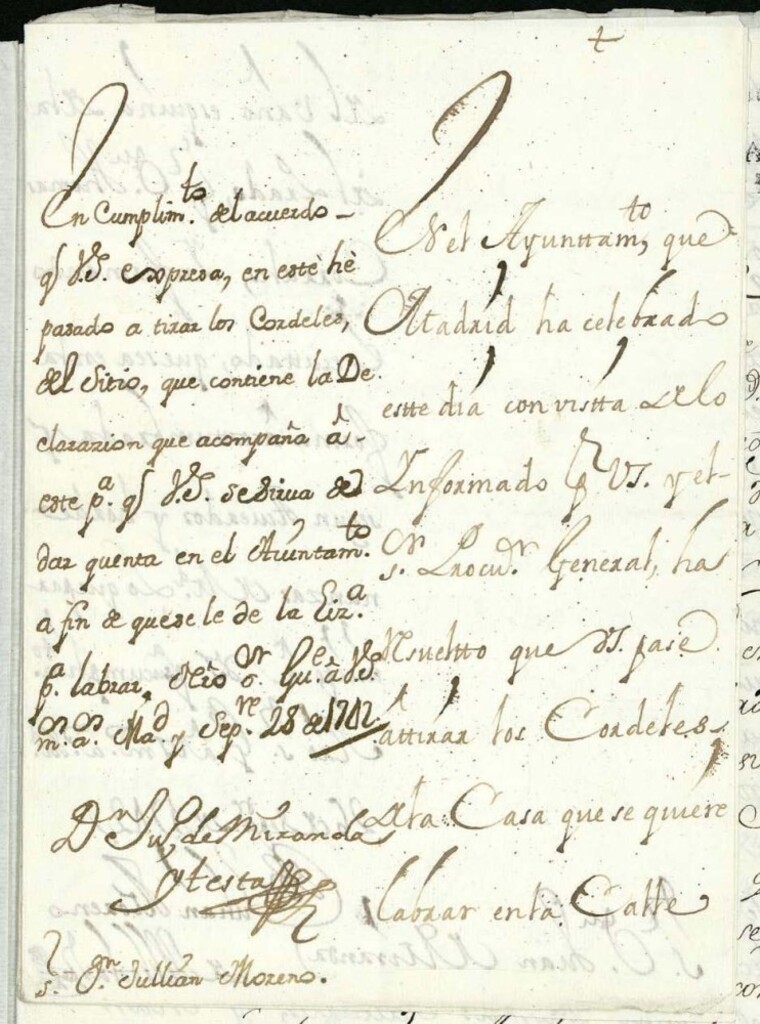 En Cumplim.to del acuerdo
q V.S. expresa, en este hè
pasado a tirar los Cordeles,
del Sitio, que contiene la De
clarazion que acompaña â
este p.a q V.S. se sirva de
dar quenta en el Ayuntam.to
a fin de que se le de la Liz.a
p.a labrar,
m.s a.s Mad.d y Sep.re 28 de 1742
D.n Ju.n de Miranda
y testa
s.r D.n Jullian Moreno.
En el Ayunttam.to, que
Madrid ha celebrado
estte dia con vistta delo
Ynformado p VS. y el
s.r Procu.r General, ha
Resueltto que VS. pase
âttirar los Cordeles
ala Casa que se quiere
labrar enla Calle